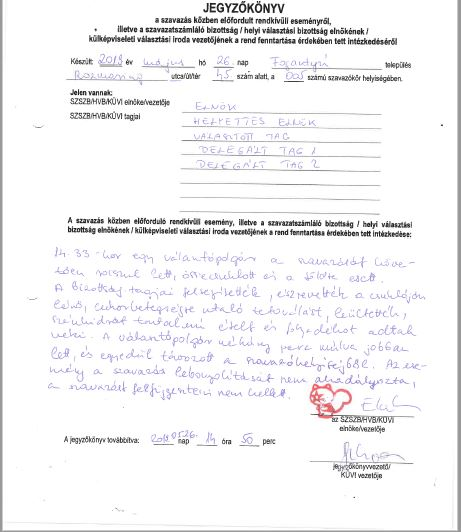 JEGYZŐKÖNYV
a szavazás közben előfordult rendkívüli eseményről,
illetve a szavazatszámláló bizottság / helyi választási bizottság elnökének /
külképviseleti választási iroda vezetőjének a rend fenntartása érdekében tett intézkedéséről
Készült: 2019 év május hó 26. nap Fogarty település
Rozmaring utca/út/tér 45 szám alatt, a 005 számú szavazókör helyiségében.
Jelen vannak:
SZSZB/HVB/KÜVI elnöke/vezetője ELNÖK
SZSZB/HVB/KÜVI tagjai HELYETTES ELNÖK
VÁLASZTOTT TAG
DELEGÁLT TAG 1
DELEGÁLT TAG 2
A szavazás közben előforduló rendkívüli esemény, illetve a szavazatszámláló bizottság / helyi választási
bizottság elnökének / külképviseleti választási iroda vezetőjének a rend fenntartása érdekében tett intézkedése:
14.33-kor egy választópolgár a szavazását köve-
tően rosszul lett, és a földre esett.
A bizottság tagjai felsegítették, észrevették a csuklóján
lévő, cukorbetegségre utaló tetoválást, leültették,
szénhidrát tartalmú ételt és folyadékot adtak
neki. A választópolgár néhány perc múlva jobban
lett, és egyedül távozott a szavazóhelyiségből. Az ese-
mény a szavazás lebonyolítását nem akadályozta,
a szavazást felfüggeszteni nem kellett.
az SZSZB/HVB/KÜVI
elnöke/vezetője
A jegyzőkönyv továbbítva: 2019.05.26. nap 14 óra 50 perc
jegyzőkönyvvezető/
KÜVI vezetője